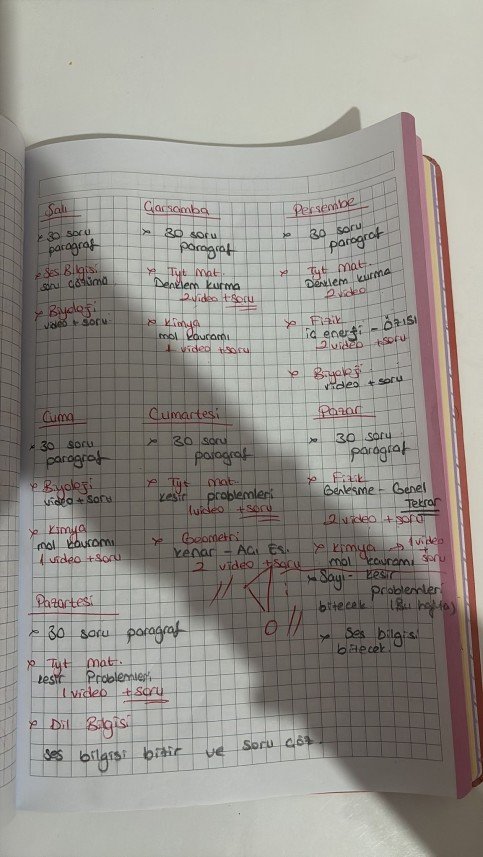 Salı
30 soru
paragraf
Ses Bilgisi
soru çözümü
Biyoloji
video + soru
Çarşamba
30 soru
paragraf
Tyt Mat.
Denklem kurma
2 video + soru
Kimya
mol kavramı
1 video + soru
Perşembe
30 soru
paragraf
Tyt Mat.
Denklem kurma
2 video
Fizik
iç enerji - Özısı
2 video + soru
Biyoloji
video + soru
Cuma
30 soru
paragraf
Biyoloji
video + soru
Kimya
mol kavramı
1 video + soru
Cumartesi
30 soru
paragraf
Tyt Mat.
kesir problemleri
1 video + soru
Geometri
Kenar - Açı Eş.
2 video + soru
Pazar
30 soru
paragraf
Fizik
Genleşme - Genel
Tekrar
2 video + soru
Kimya → 1 video
mol kavramı + soru
Sayı - kesir
problemleri
bitecek (Bu hafta)
Ses bilgisi
bitecek.
Pazartesi
30 soru paragraf
Tyt Mat.
kesir Problemleri
1 video + soru
Dil Bilgisi
ses bilgisi bitir ve soru çöz.